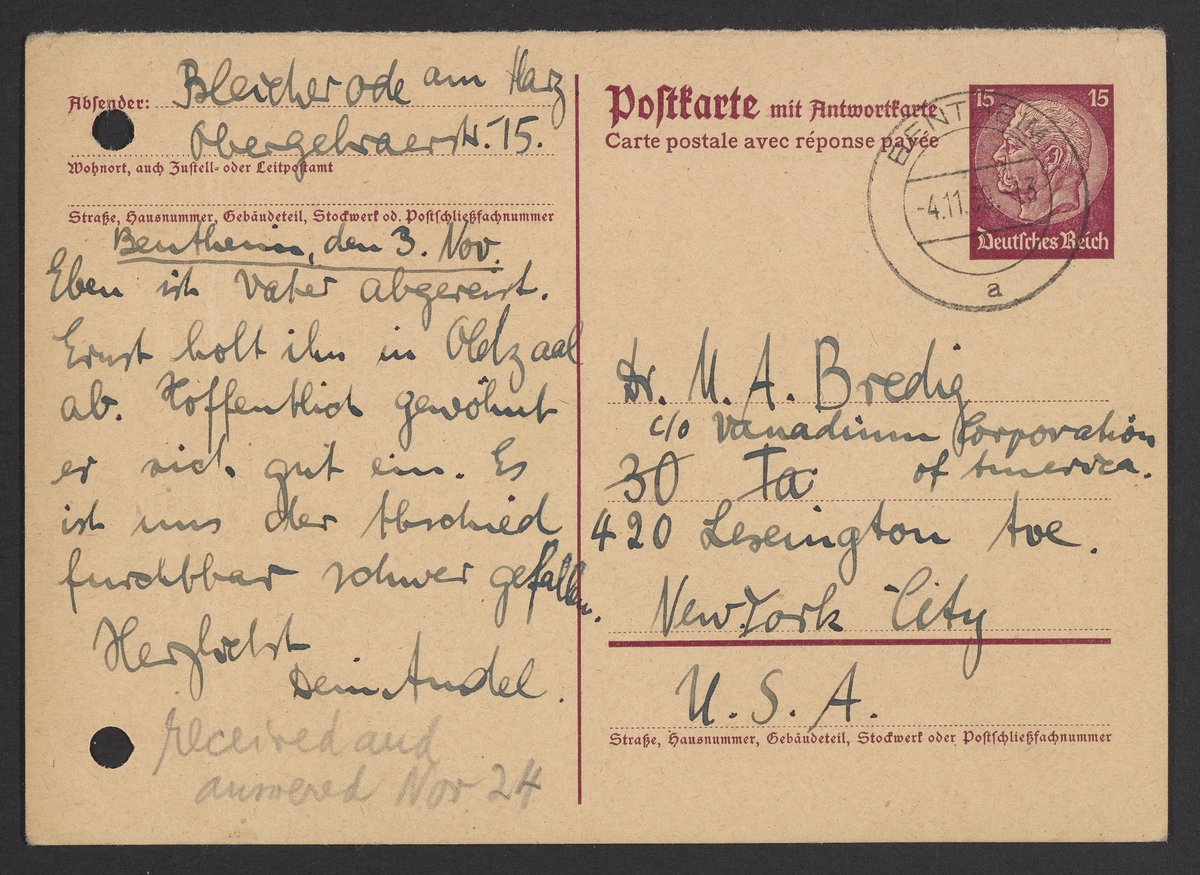 Absender: Bleicherode am Harz
Obergebraerstr. 15.
Wohnort, auch Zustell- oder Leitpostamt
Straße, Hausnummer, Gebäudeteil, Stockwerk od. Postschließfachnummer
Bentheim, den 3. Nov.
Eben ist Vater abgereist.
Ernst holt ihn in Oldzaal
ab. Hoffentlich gewöhnt
er sich gut ein. Es
ist uns der Abschied
furchtbar schwer gefallen.
Herzlichst
Dein Andel.
received and
answered Nov 24
Postkarte mit Antwortkarte
Carte postale avec réponse payée
15 15
Deutsches Reich
BENTHEIM
-4.11.39 -13
a
Dr. M. A. Bredig
c/o Vanadium Corporation
of America.
30 Ta
420 Lexington Ave.
New York City
U. S. A.
Straße, Hausnummer, Gebäudeteil, Stockwerk oder Postschließfachnummer